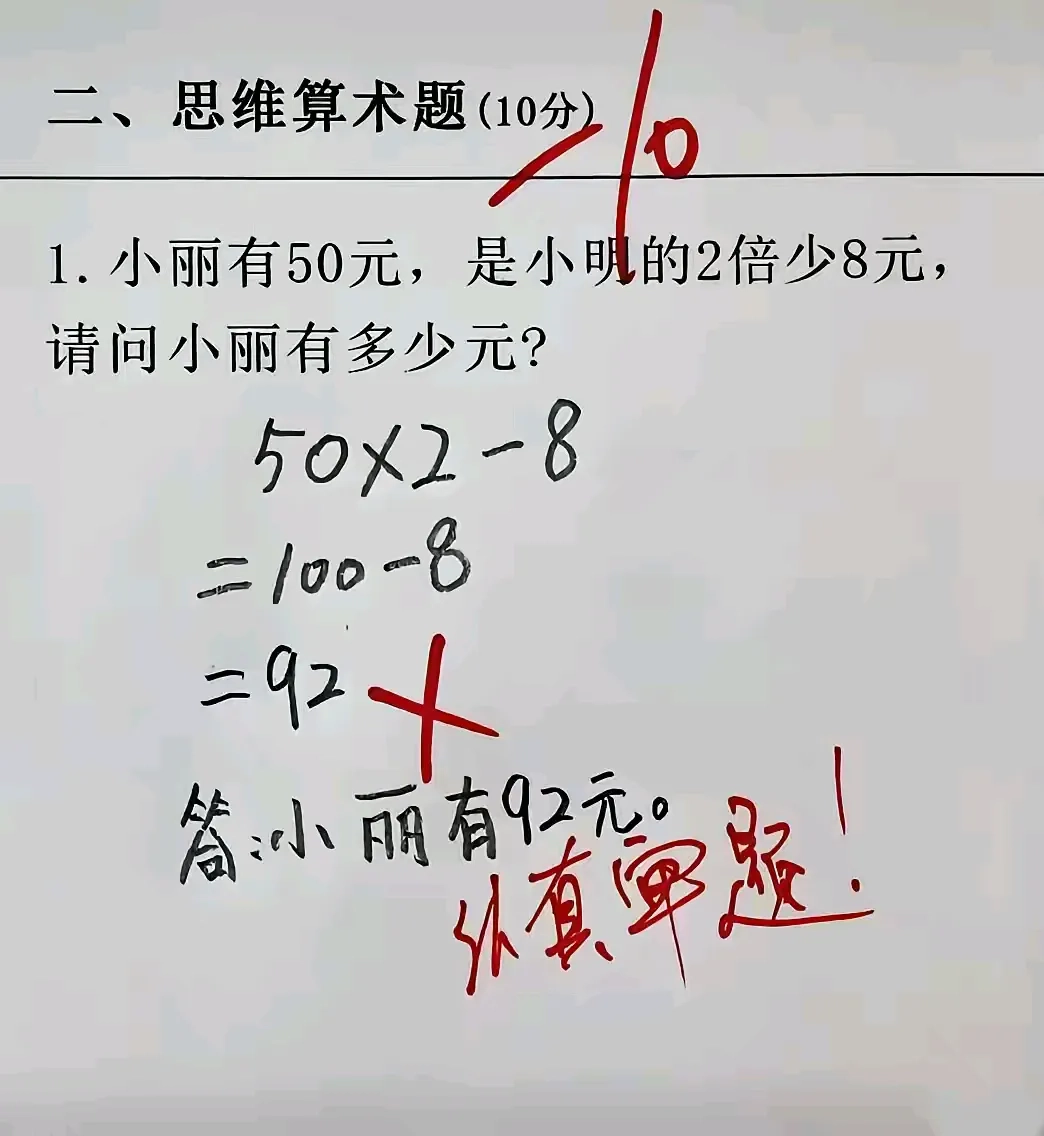 二、思维算术题(10分)
-10
1. 小丽有50元，是小明的2倍少8元，
请问小丽有多少元?
50×2-8
=100-8
=92
答:小丽有92元。
认真审题！